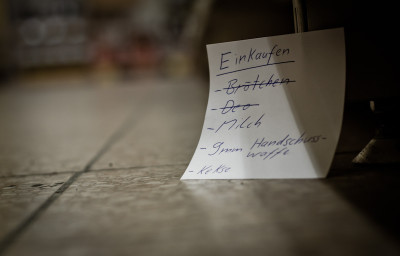 Einkaufen
- Brötchen
- Deo
- Milch
- 9mm Handschuss-
waffe
- Kekse